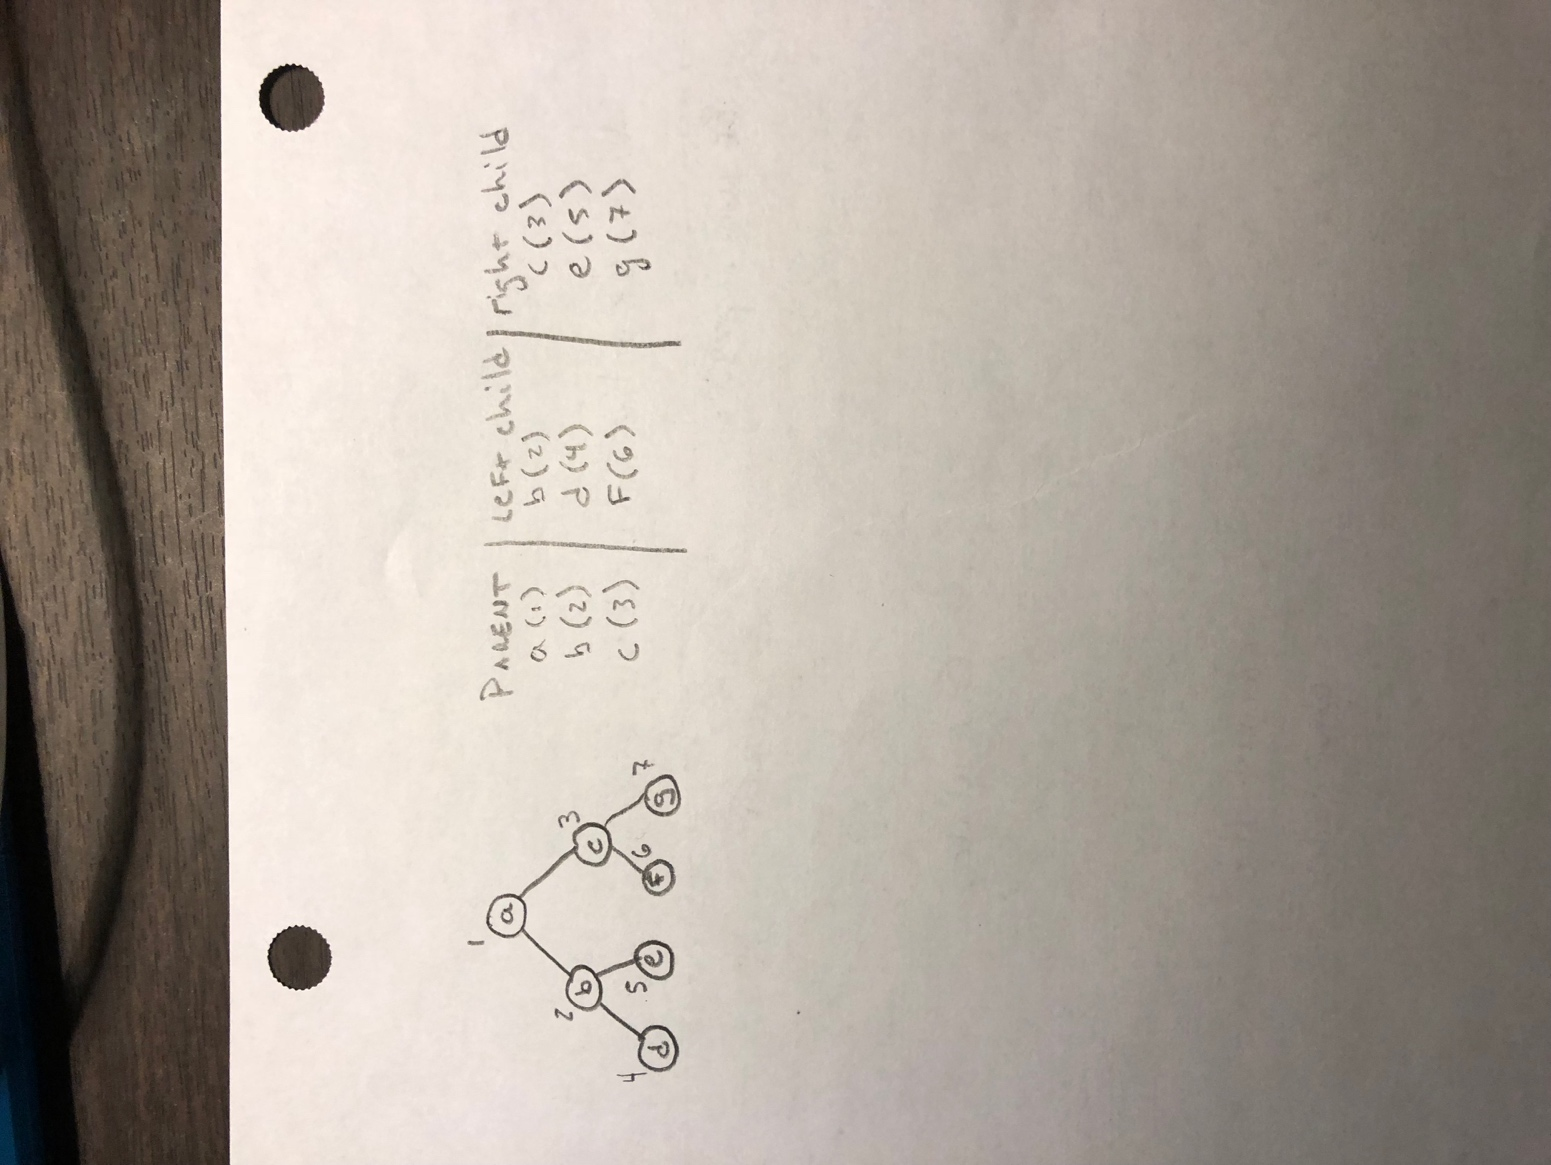 1
a
2 b c 3
4 d 5 e f 6 g 7
PARENT | Left child | right child
a (1) b (2) c (3)
b (2) d (4) e (5)
c (3) F (6) g (7)